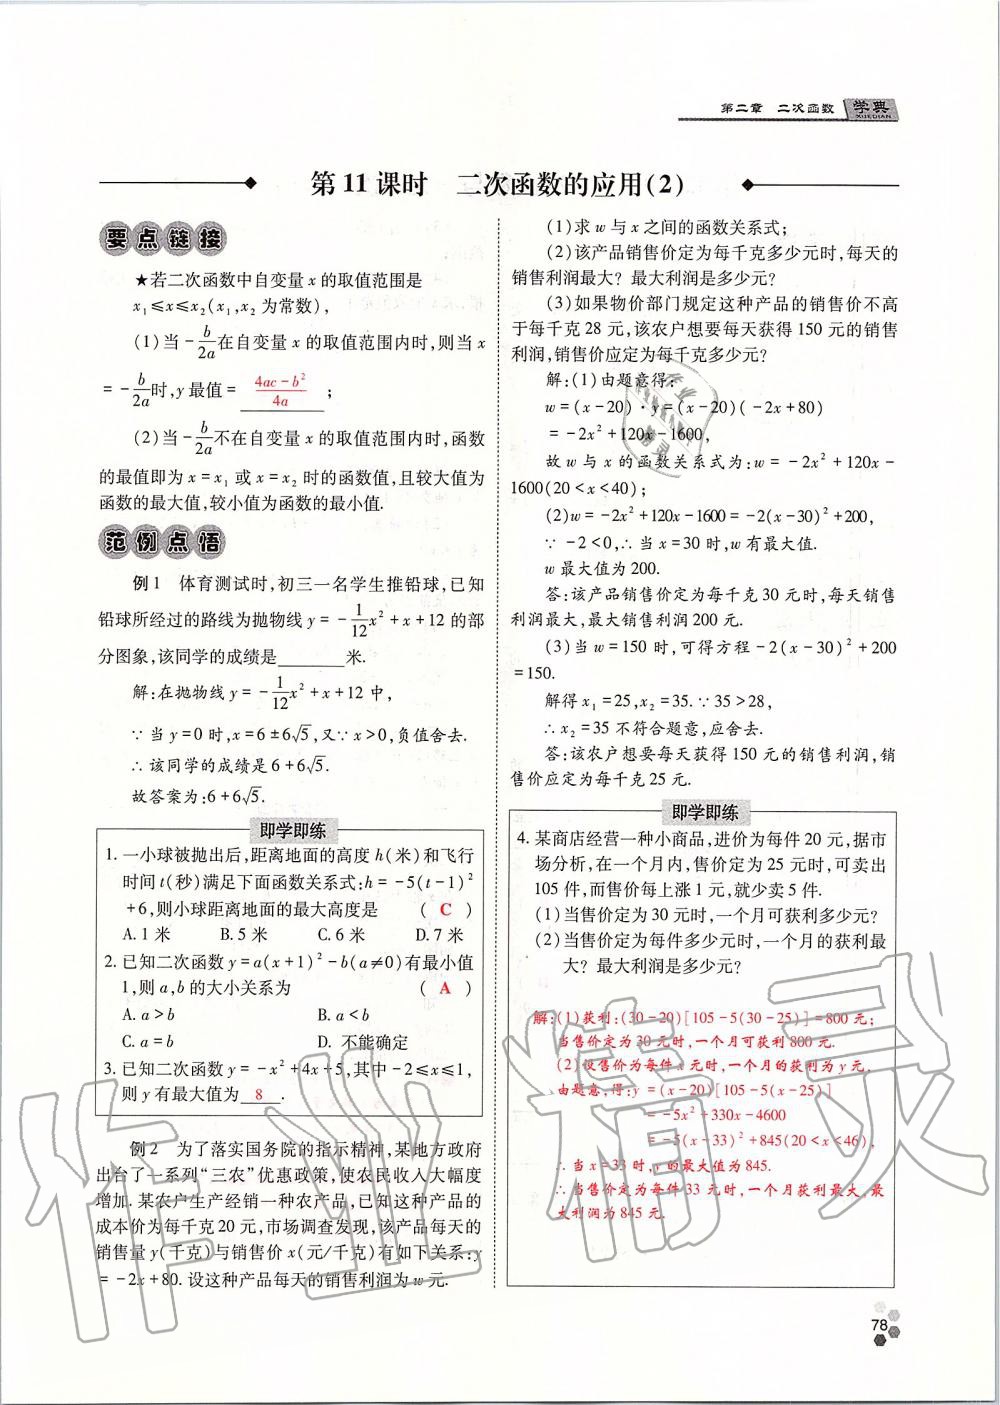 第二章 二次函数 学典
XUEDIAN
第11课时 二次函数的应用(2)
要点链接
★若二次函数中自变量x的取值范围是
x₁≤x≤x₂(x₁,x₂为常数),
(1)当-b/2a在自变量x的取值范围内时,则当x
=-b/2a时,y最值= (4ac-b²)/4a ;
(2)当-b/2a不在自变量x的取值范围内时,函数
的最值即为x=x₁或x=x₂时的函数值,且较大值为
函数的最大值,较小值为函数的最小值.
范例点悟
例1 体育测试时,初三一名学生推铅球,已知
铅球所经过的路线为抛物线y=-1/12x²+x+12的部
分图象,该同学的成绩是______米.
解:在抛物线y=-1/12x²+x+12中,
∵当y=0时,x=6±6√5,又∵x>0,负值舍去.
∴该同学的成绩是6+6√5.
故答案为:6+6√5.
即学即练
1. 一小球被抛出后,距离地面的高度h(米)和飞行
时间t(秒)满足下面函数关系式:h=-5(t-1)²
+6,则小球距离地面的最大高度是 ( C )
A.1米 B.5米 C.6米 D.7米
2. 已知二次函数y=a(x+1)²-b(a≠0)有最小值
1,则a,b的大小关系为 ( A )
A. a>b B. a<b
C. a=b D. 不能确定
3. 已知二次函数y=-x²+4x+5,其中-2≤x≤1,
则y有最大值为 8 .
例2 为了落实国务院的指示精神,某地方政府
出台了一系列“三农”优惠政策,使农民收入大幅度
增加.某农户生产经销一种农产品,已知这种产品的
成本价为每千克20元,市场调查发现,该产品每天的
销售量y(千克)与销售价x(元/千克)有如下关系:y
=-2x+80.设这种产品每天的销售利润为w元.
(1)求w与x之间的函数关系式;
(2)该产品销售价定为每千克多少元时,每天的
销售利润最大?最大利润是多少元?
(3)如果物价部门规定这种产品的销售价不高
于每千克28元,该农户想要每天获得150元的销售
利润,销售价应定为每千克多少元?
解:(1)由题意得:
w=(x-20)·y=(x-20)(-2x+80)
=-2x²+120x-1600,
故w与x的函数关系式为:w=-2x²+120x-
1600(20<x<40);
(2)w=-2x²+120x-1600=-2(x-30)²+200,
∵-2<0,∴当x=30时,w有最大值.
w最大值为200.
答:该产品销售价定为每千克30元时,每天销售
利润最大,最大销售利润200元.
(3)当w=150时,可得方程-2(x-30)²+200
=150.
解得x₁=25,x₂=35.∵35>28,
∴x₂=35不符合题意,应舍去.
答:该农户想要每天获得150元的销售利润,销
售价应定为每千克25元.
即学即练
4. 某商店经营一种小商品,进价为每件20元,据市
场分析,在一个月内,售价定为25元时,可卖出
105件,而售价每上涨1元,就少卖5件.
(1)当售价定为30元时,一个月可获利多少元?
(2)当售价定为每件多少元时,一个月的获利最
大?最大利润是多少元?
解:(1)获利:(30-20)[105-5(30-25)]=800元;
当售价定为30元时,一个月可获利800元.
(2)设售价为每件x元时,一个月的获利为y元.
由题意,得:y=(x-20)[105-5(x-25)]
=-5x²+330x-4600
=-5(x-33)²+845(20<x<46),
∴当x=33时,y的最大值为845.
∴当售价定为每件33元时,一个月获利最大,最
大利润为845元.
78
作业精灵